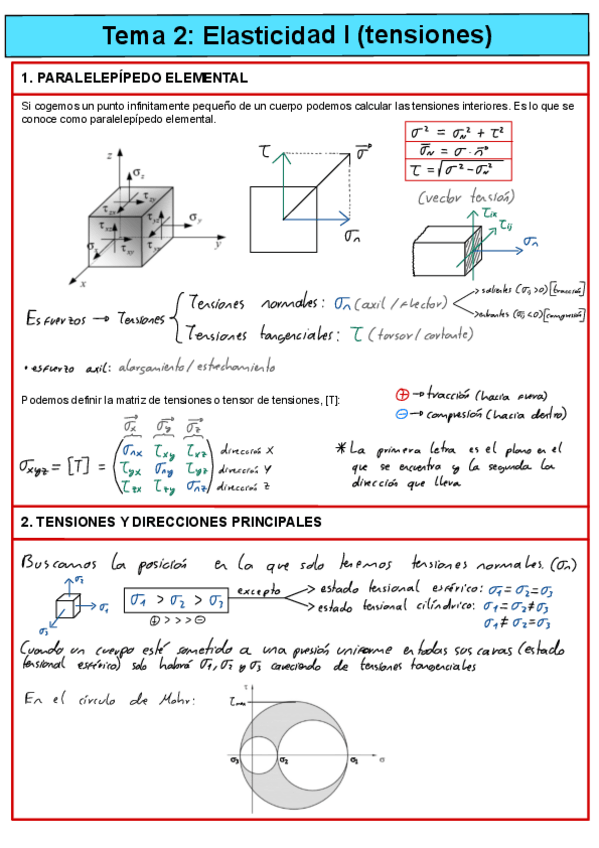 Tema 2: Elasticidad I (tensiones)
1. PARALELEPÍPEDO ELEMENTAL
Si cogemos un punto infinitamente pequeño de un cuerpo podemos calcular las tensiones interiores. Es lo que se
conoce como paralelepípedo elemental.
σ² = σₙ² + τ²
σ̄ₙ = σ · n⃗
τ = √(σ² - σₙ²)
(vector tensión)
z
σz
τzy
τzx
τyz
σy
τxz
τyx
σx
τxy
y
x
τ
σ⃗
σn
τix
τij
σn
Esfuerzos → Tensiones
Tensiones normales: σn (axil / flector)
salientes (σn>0) [tracción]
entrantes (σn<0) [compresión]
Tensiones tangenciales: τ (torsor / cortante)
• esfuerzo axil: alargamiento / estrechamiento
Podemos definir la matriz de tensiones o tensor de tensiones, [T]:
⊕ → tracción (hacia fuera)
⊖ → compresión (hacia dentro)
σ⃗x σ⃗y σ⃗z
σnx τxy τxz dirección X
σxyz = [T] = τyx σny τyz dirección Y
τzx τzy σnz dirección Z
* La primera letra es el plano en el
que se encuentra y la segunda la
dirección que lleva
2. TENSIONES Y DIRECCIONES PRINCIPALES
Buscamos la posición en la que solo tenemos tensiones normales. (σn)
σ2
σ1
σ3
σ1 > σ2 > σ3
⊕ > > > ⊖
excepto
estado tensional esférico: σ1 = σ2 = σ3
estado tensional cilíndrico: σ1 = σ2 ≠ σ3
σ1 ≠ σ2 = σ3
Cuando un cuerpo esté sometido a una presión uniforme en todas sus caras (estado
tensional esférico) solo habrá σ1, σ2 y σ3 careciendo de tensiones tangenciales
En el círculo de Mohr:
τ
τmax
σ3
σ2
σ1
σ